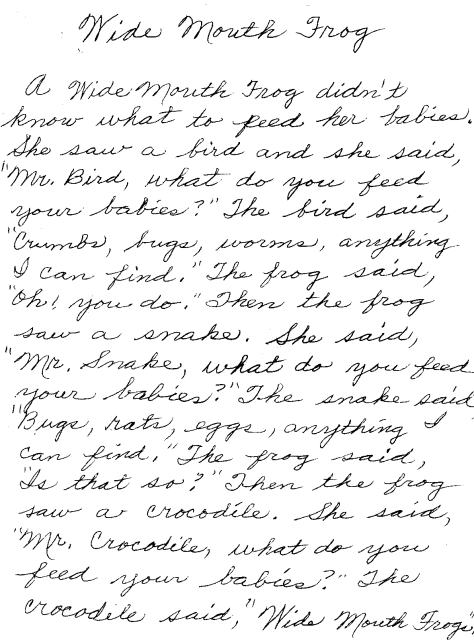 Wide Mouth Frog
A Wide Mouth Frog didn't
know what to feed her babies.
She saw a bird and she said,
"Mr. Bird, what do you feed
your babies?" The bird said,
"Crumbs, bugs, worms, anything
I can find." The frog said,
"Oh! you do." Then the frog
saw a snake. She said,
"Mr. Snake, what do you feed
your babies?" The snake said
"Bugs, rats, eggs, anything I
can find." The frog said,
"Is that so?" Then the frog
saw a crocodile. She said,
"Mr. Crocodile, what do you
feed your babies?" The
crocodile said, "Wide Mouth Frogs".